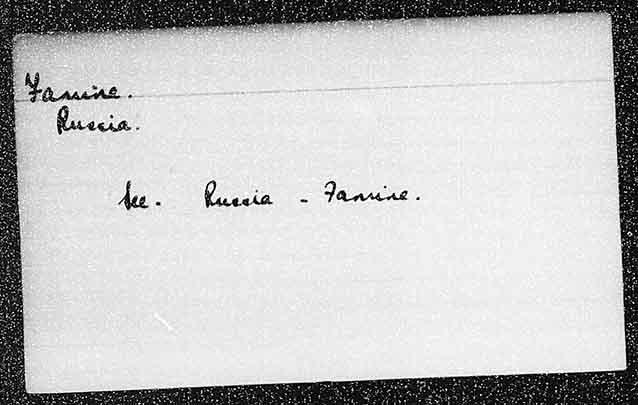 Famine.
Russia.
See. Russia - Famine.